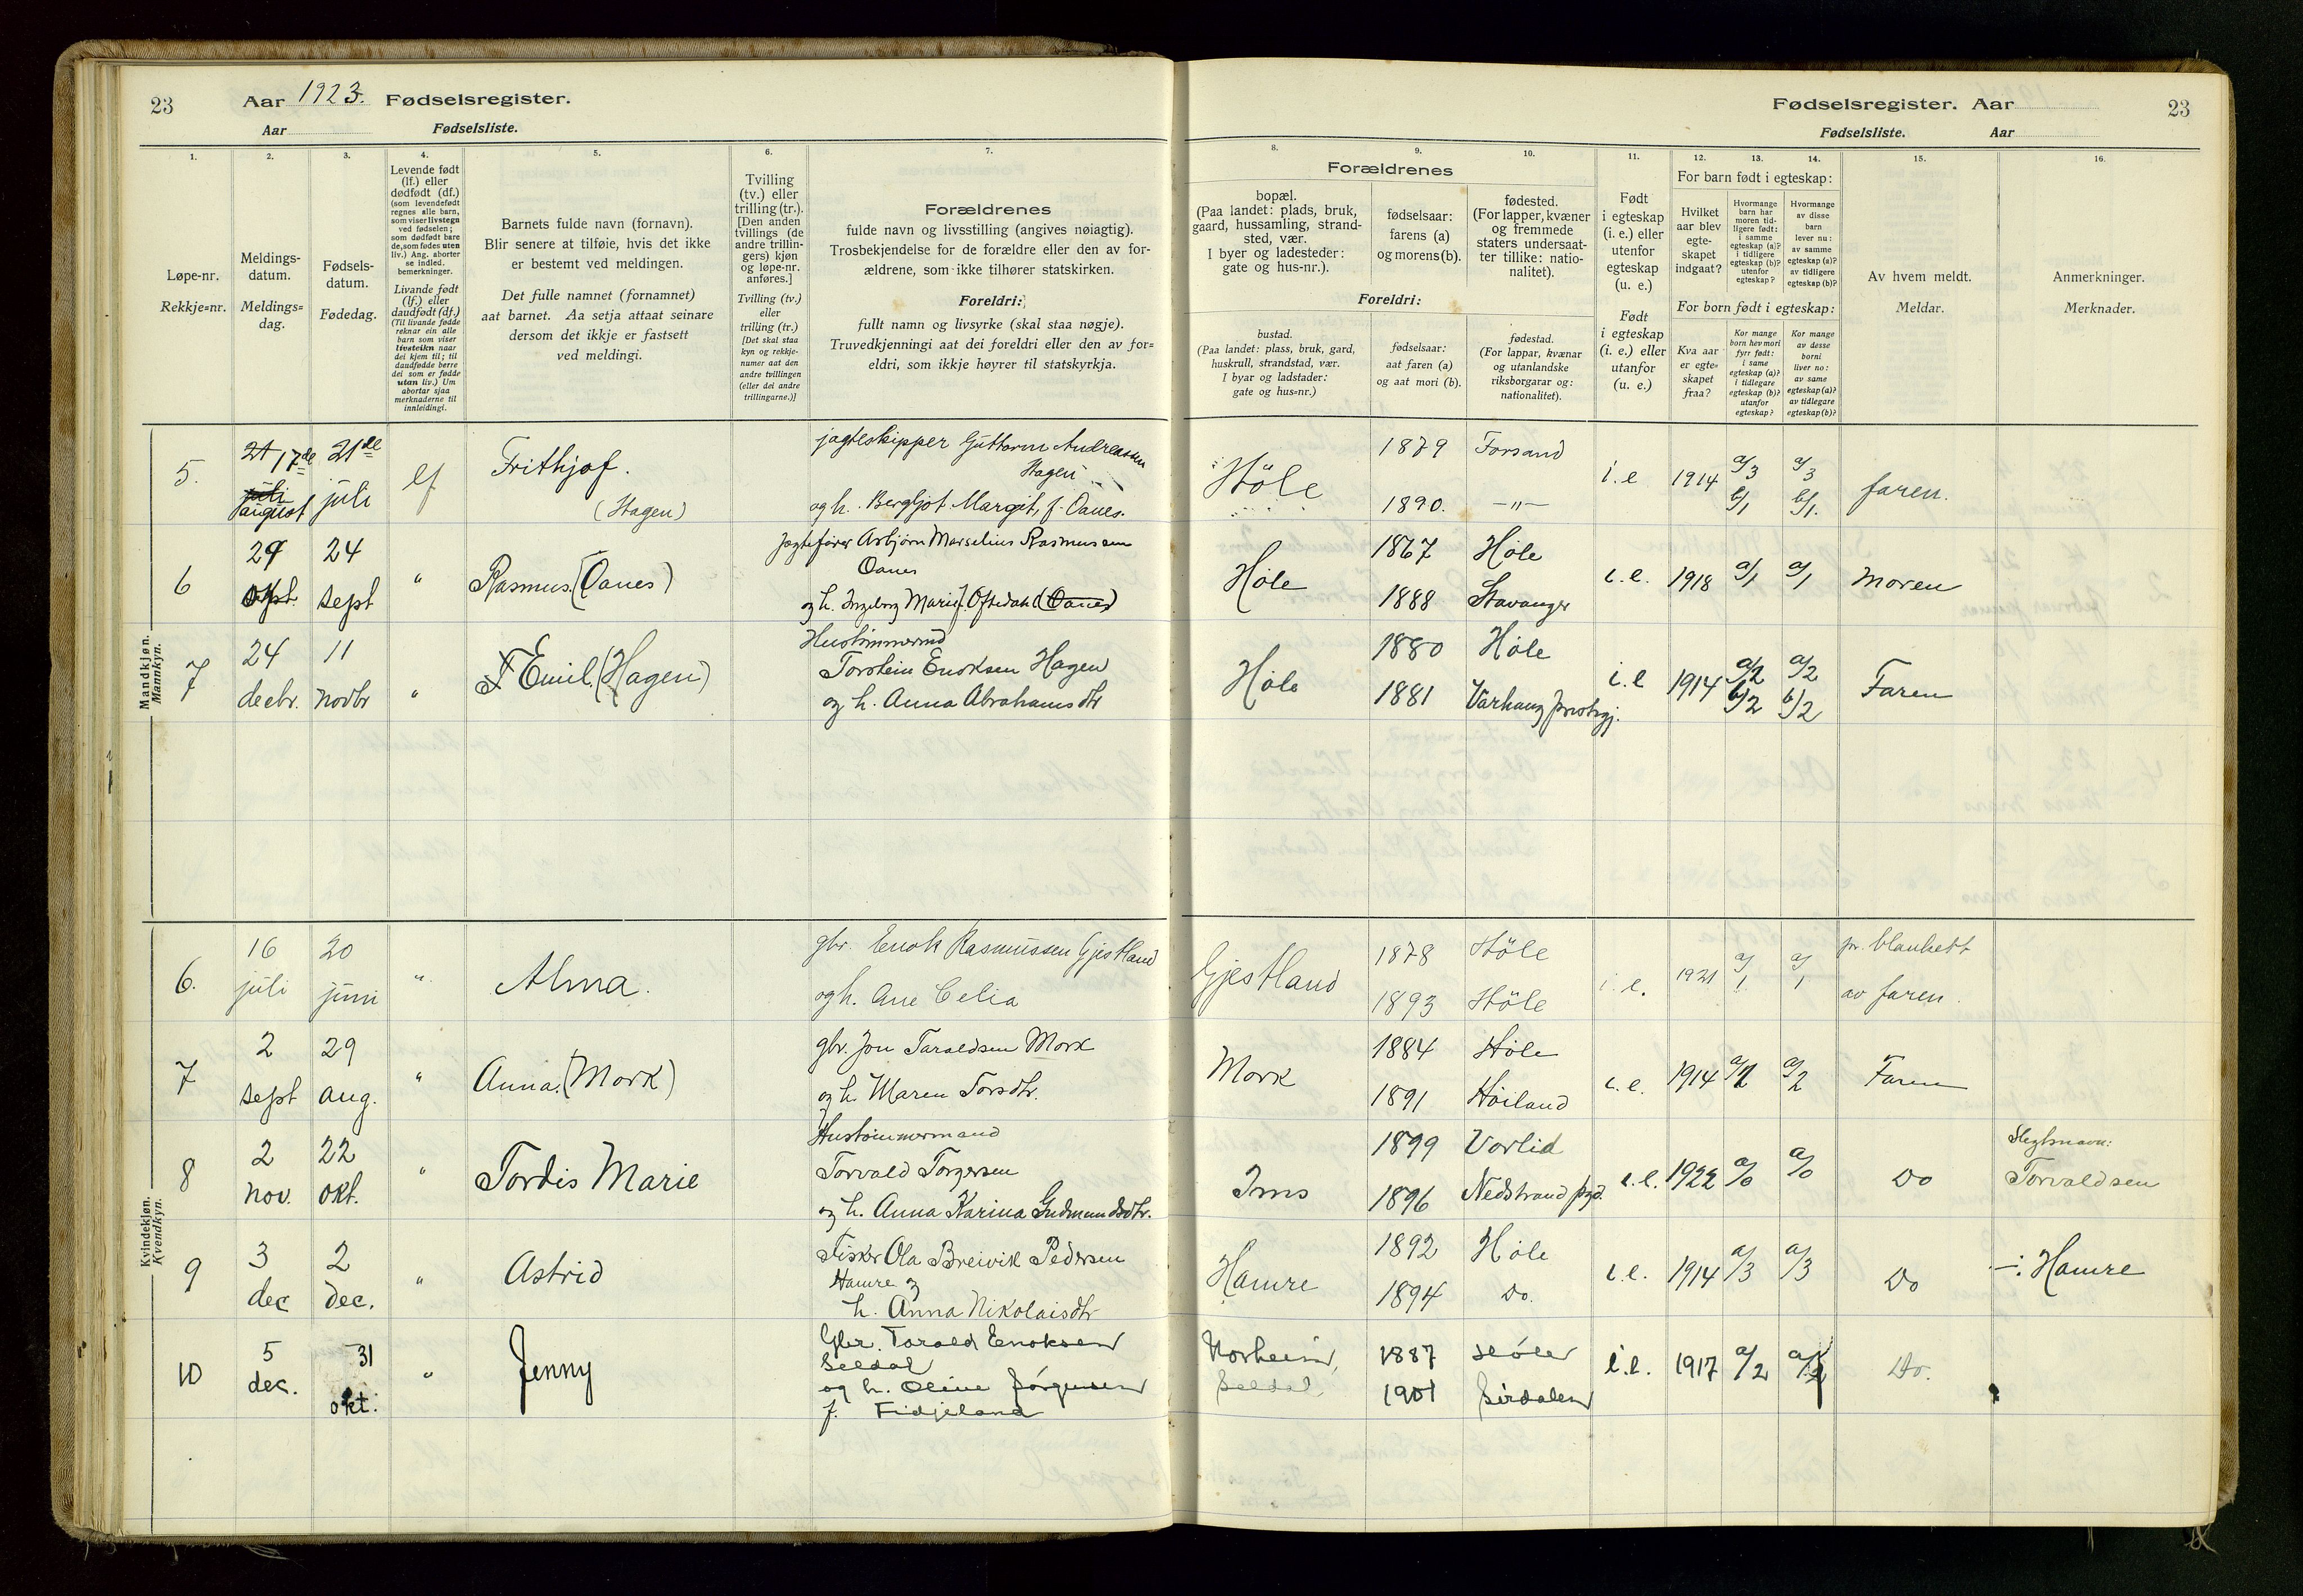 23
Aar 1923. Fødselsregister.
Aar Fødselsliste.
Fødselsregister. Aar
23
Fødselsliste. Aar
1. 2. 3. 4. 5. 6. 7. 8. 9. 10. 11. 12. 13. 14. 15. 16.
Løpe-nr.
Rekkje=nr.
Meldings-
datum.
Meldings=
dag.
Fødsels-
datum.
Fødedag.
Levende født
(lf.) eller
dødfødt (df.)
(som levendefødt
regnes alle barn,
som viser livstegn
ved fødselen;
som dødfødt bare
de, som fødes uten
liv.) Ang. aborter
se indled.
bemerkninger.
Livande født
(lf.) eller
daudfødt (df.)
(Til livande fødde
reknar ein alle
barn som viser
livsteikn naar
dei kjem til; til
daudfødde berre
dei som er fødde
utan liv.) Um
abortar sjaa
merknaderne til
innleidingi.
Barnets fulde navn (fornavn).
Blir senere at tilføie, hvis det ikke
er bestemt ved meldingen.
Det fulle namnet (fornamnet)
aat barnet. Aa setja attaat seinare
dersom det ikkje er fastsett
ved meldingi.
Tvilling
(tv.) eller
trilling (tr.).
[Den anden
tvillings (de
andre trillin-
gers) kjøn
og løpe-nr.
anføres.]
Tvilling (tv.)
eller
trilling (tr.)
[Det skal staa
kyn og rekkje-
numer aat den
andre tvillingen
(eller dei andre
trillingarne.)]
Forældrenes
fulde navn og livsstilling (angives nøiagtig).
Trosbekjendelse for de forældre eller den av for-
ældrene, som ikke tilhører statskirken.
Foreldri:
fullt namn og livsyrke (skal staa nøgje).
Truvedkjenningi aat dei foreldri eller den av for=
eldri, som ikkje høyrer til statskyrkja.
Forældrenes
bopæl.
(Paa landet: plads, bruk,
gaard, hussamling, strand-
sted, vær.
I byer og ladesteder:
gate og hus-nr.).
fødselsaar:
farens (a)
og morens (b).
fødested.
(For lapper, kvæner
og fremmede
staters undersaat-
ter tillike: natio-
nalitet).
Foreldri:
bustad.
(Paa landet: plass, bruk, gard,
huskrull, strandstad, vær.
I byar og ladstader:
gate og hus=nr.)
fødselsaar:
aat faren (a)
og aat mori (b).
fødestad.
(For lappar, kvænar
og utanlandske
riksborgarar og:
nationalitet).
Født
i egteskap
(i. e.) eller
utenfor
egteskap
(u. e.)
Født
i egteskap
(i. e.) eller
utanfor
(u. e.)
For barn født i egteskap:
Hvilket
aar blev
egte-
skapet
indgaat?
Hvormange
barn har
moren tid-
ligere født:
i samme
egteskap (a)?
i tidligere
egteskap (b)?
utenfor
egteskap?
Hvormange
av disse
barn
lever nu:
av samme
egteskap (a)?
av tidligere
egteskap (b)?
For born født i egteskap:
Kva aar
er egte=
skapet
fraa?
Kor mange
born hev mori
fyrr født:
i same
egteskap (a)?
i tidlegare
egteskap (b)?
utanfor
egteskap?
Kor mange
av desse
borni
liver no:
av same
egteskap (a)?
av tidlegare
egteskap (b)?
Av hvem meldt.
Meldar.
Anmerkninger.
Merknader.
Mandkjøn.
Mannkyn.
5. 17de august 21de juli lf Frithjof. (Hagen)
jagteskipper Guttorm Andreassen
Hagen
og h. Bergljot Margit, f. Oanes.
Höle 1879 Forsand i.e 1914 a/3 a/3 faren.
1890. —"— b/1 b/1.
6 24 sept " Rasmus. (Oanes)
Jagtefører Asbjørn Marselius Rasmussen
Oanes
og h. Ingeborg Marie f. Oftedahl (Oanes)
Høle 1867 Høle i.e. 1918 a/1 a/1 Moren
1888 Stavanger
7 24 decbr. 11 novbr " Emil. (Hagen)
Hustømmermd
Torstein Enoksen Hagen
og h. Anna Abrahamsdtr
Høle 1880 Høle i.e 1914 a/2 a/2 Faren
1881 Varhaug prestegj. b/2 b/2
Kvindekjøn.
Kvendkyn.
6. 16 juli 20 juni " Alma.
gbr. Enok Rasmussen Gjestland
og h. Ane Celia
Gjestland 1878 Höle i.e. 1921 a/1 a/1 pr. blankett
1893 Höle av faren.
7 2 sept 29 aug. " Anna. (Mork)
gbr. Jon Taraldsen Mork
og h. Maren Torsdtr.
Mork 1884 Høle i.e. 1914 a/2 a/2 Faren
1891 Høiland
8 2 nov. 22 okt. " Tordis Marie
Hustømmermand
Torvald Torgersen
og h. Anna Karina Gudmundsdtr.
Ims 1899 Vorlid i.e. 1922 a/0 a/0 Do Slegtsnavn:
1896 Nedstrand pgd. Torvaldsen
9 3 dec 2 dec. " Astrid
Fisker Ola Breivik Pedersen
Hamre og
h. Anna Nikolaisdtr
Hamre 1892 Høle i.e. 1914 a/3 a/3 Do —: Hamre
1894 Do.
10 5 dec. 31 okt. " Jenny
Gbr. Torald Enoksen
Seldal
og h. Oline Jörgensen
f. Fidjeland
Norheim, 1887 Høle i.e. 1917 a/2 Do.
Seldal. 1901 Sirdalen